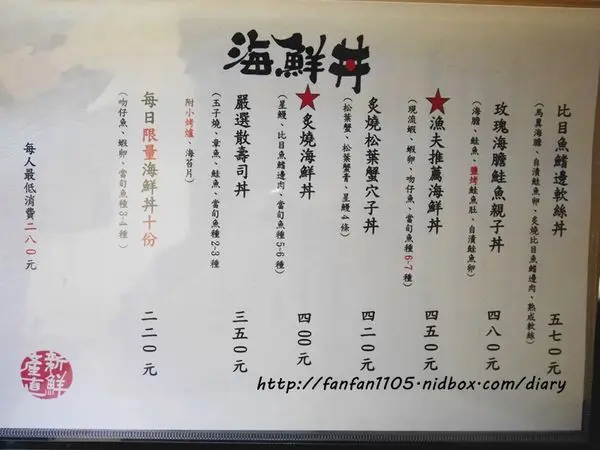 海鮮丼
比目魚鰭邊軟絲丼 五七0元
(馬糞海膽、自漬鮭魚卵、炙燒比目魚鰭邊肉、熟成軟絲)
玫瑰海膽鮭魚親子丼 四八0元
(海膽、鮭魚、鹽烤鮭魚肚、自漬鮭魚卵)
★漁夫推薦海鮮丼 四五0元
(現流蝦、蝦卵、吻仔魚、當旬魚種6-7種)
炙燒松葉蟹穴子丼 四二0元
(松葉蟹、松葉蟹膏、星鰻4條)
★炙燒海鮮丼 四00元
(星鰻、比目魚鰭邊肉、當旬魚種5-6種)
嚴選散壽司丼 三五0元
(玉子燒、章魚、鮭魚、當旬魚種2-3種)
附小烤爐、海苔片)
每日限量海鮮丼十份 二二0元
(吻仔魚、蝦卵、當旬魚種3-4種)
每人最低消費二八0元
新鮮
產直
http://fanfan1105.nidbox.com/diary